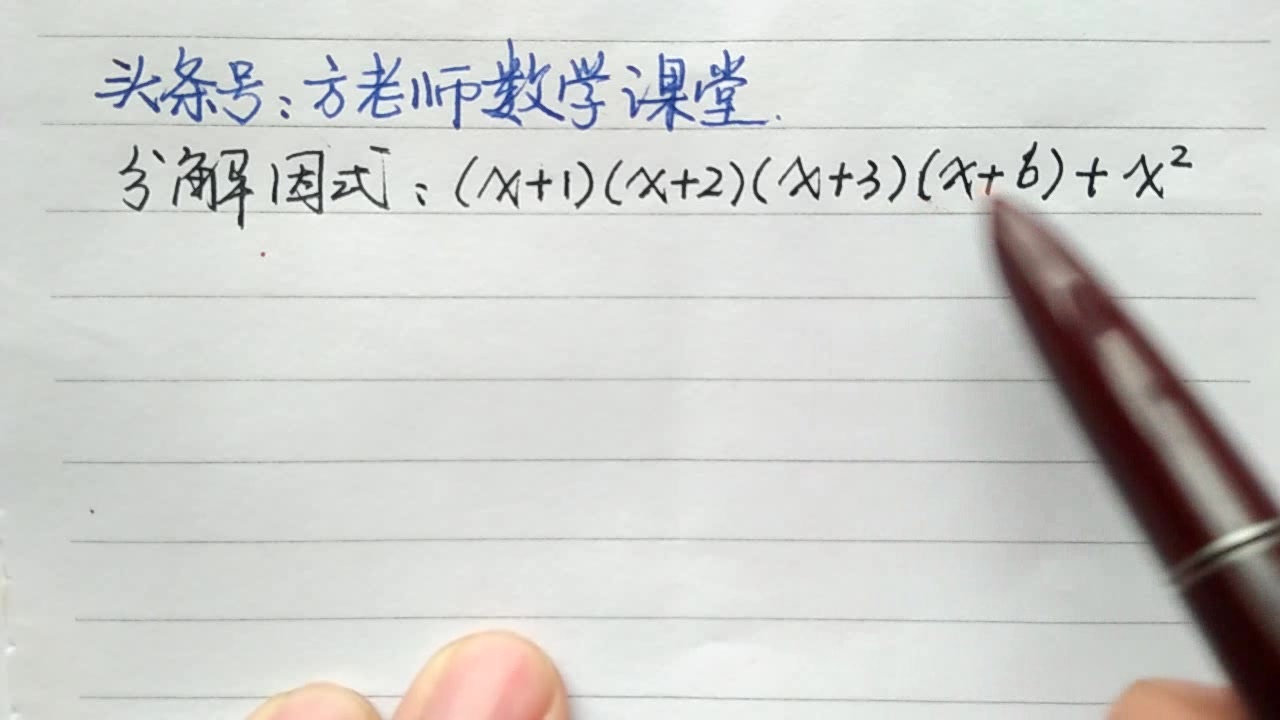 头条号:方老师数学课堂.
分解因式:(x+1)(x+2)(x+3)(x+6)+x²